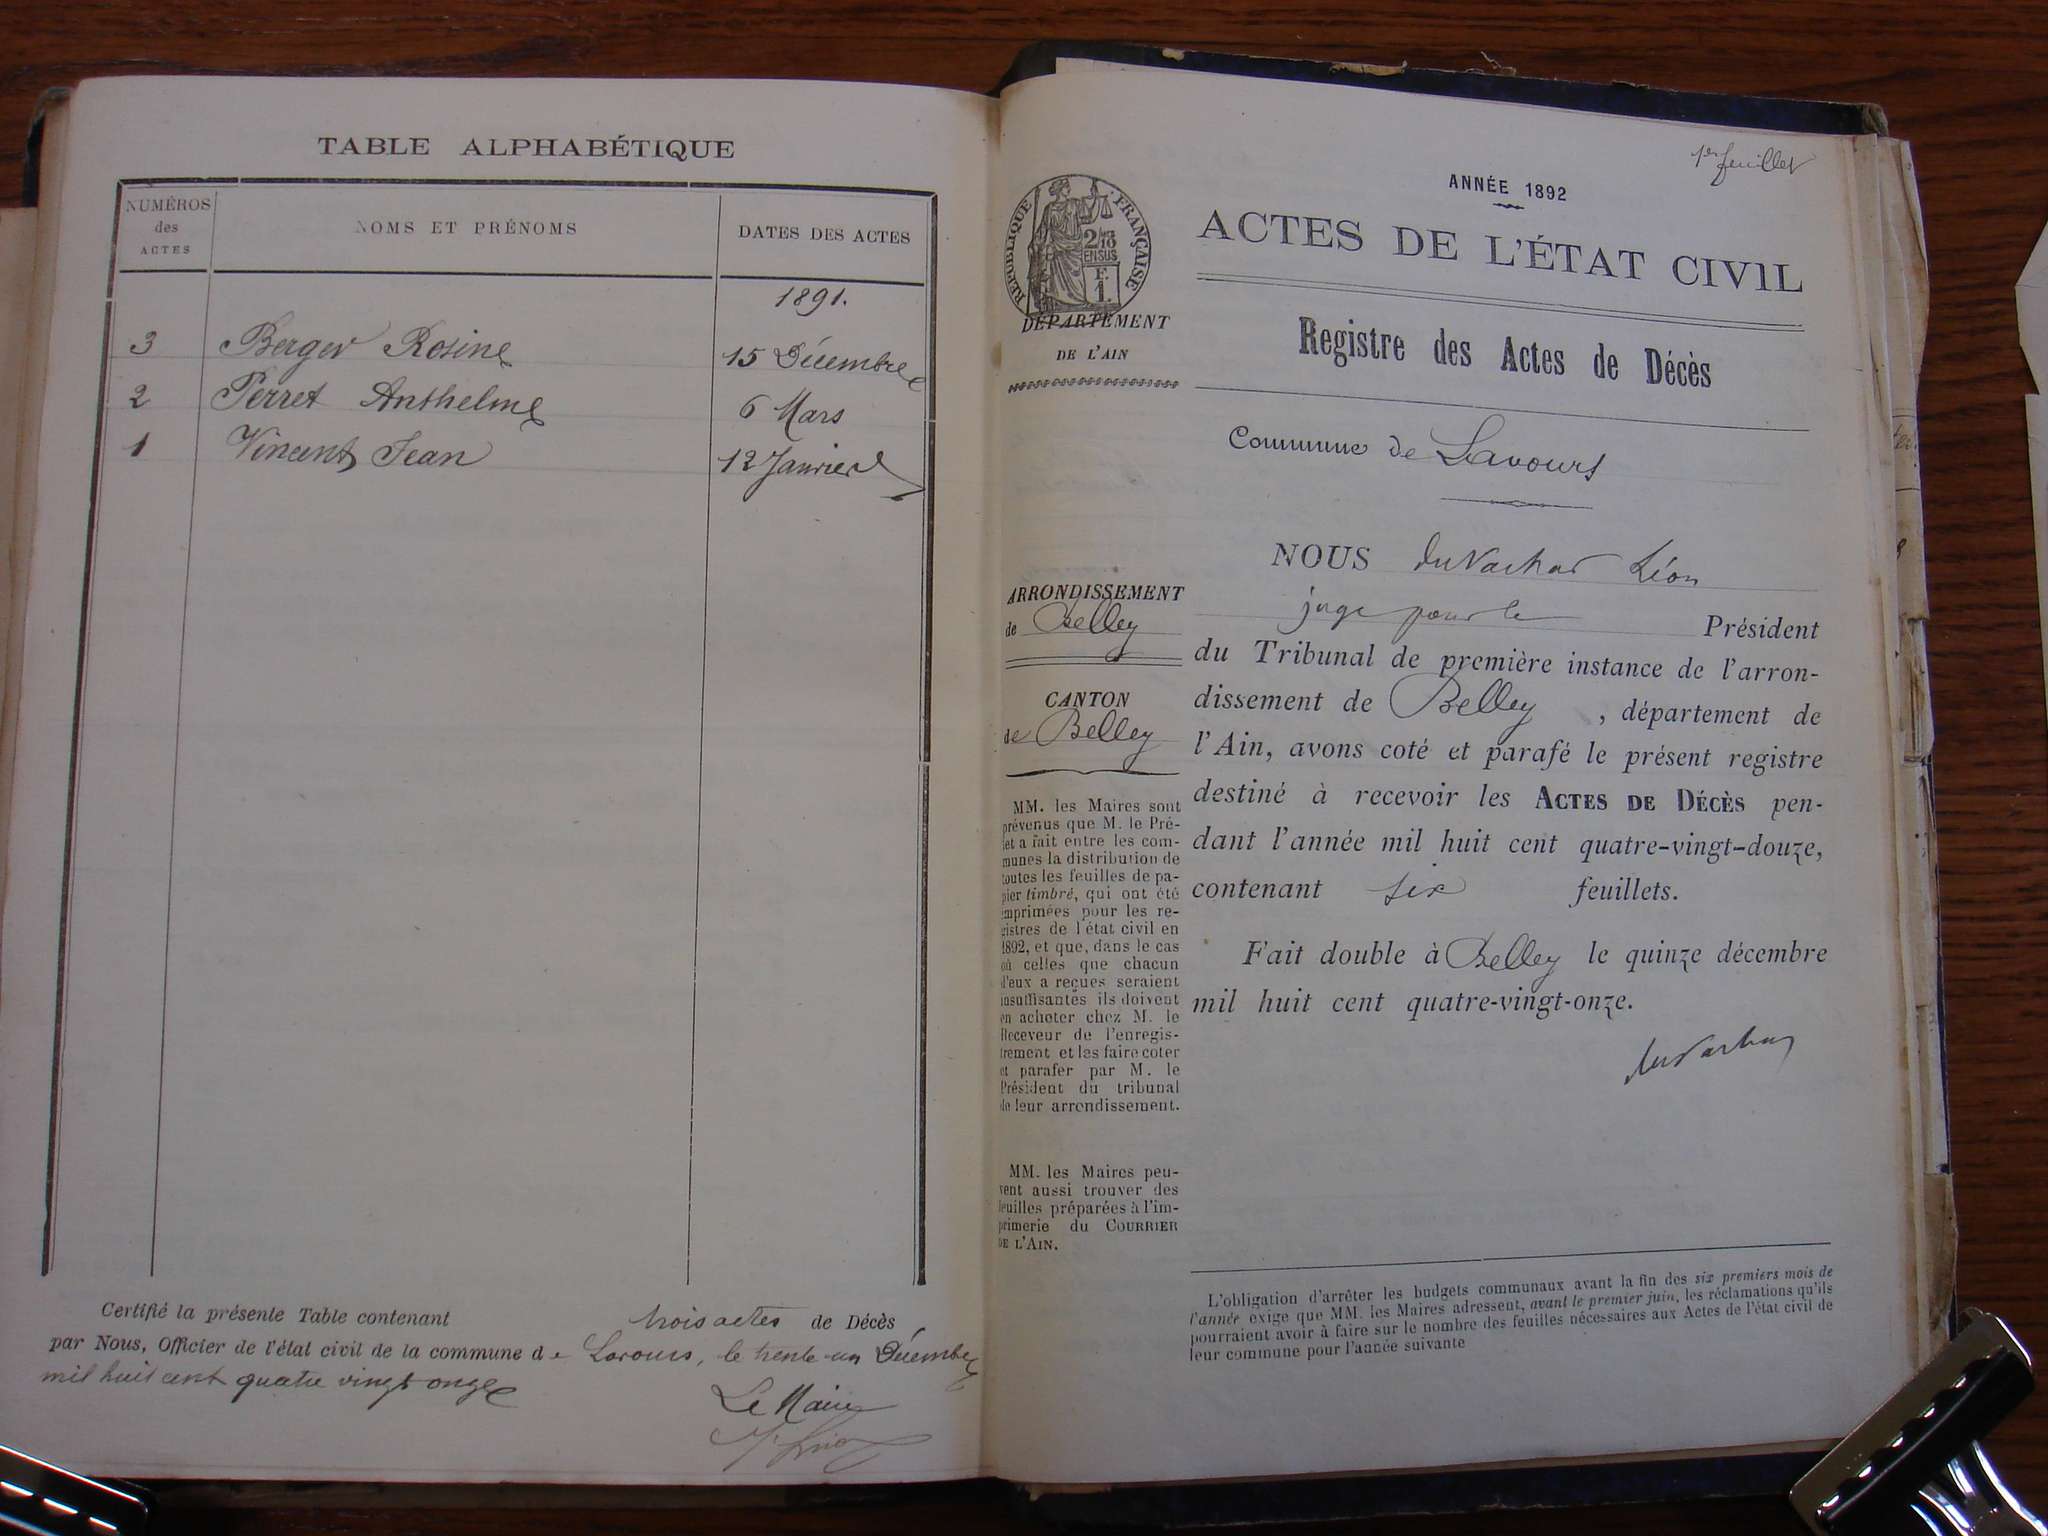 TABLE ALPHABÉTIQUE
NUMÉROS des ACTES
NOMS ET PRÉNOMS
DATES DES ACTES
1891.
3 Berger Rosine 15 Décembre
2 Perret Anthelme 6 Mars
1 Vincent Jean 12 Janvier
Certifié la présente Table contenant trois actes de Décès
par Nous, Officier de l'état civil de la commune de Lavours, le trente un Décembre
mil huit cent quatre vingt onze
Le Maire
1er feuillet
ANNÉE 1892
ACTES DE L'ÉTAT CIVIL
RÉPUBLIQUE FRANÇAISE
2/10
EN SUS
F.
1.
DÉPARTEMENT
DE L'AIN
Registre des Actes de Décès
Commune de Lavours
ARRONDISSEMENT
de Belley
CANTON
de Belley
MM. les Maires sont
prévenus que M. le Pré-
fet a fait entre les com-
munes la distribution de
toutes les feuilles de pa-
pier timbré, qui ont été
imprimées pour les re-
gistres de l'état civil en
1892, et que, dans le cas
où celles que chacun
d'eux a reçues seraient
insuffisantes ils doivent
en acheter chez M. le
Receveur de l'enregis-
trement et les faire coter
et parafer par M. le
Président du tribunal
de leur arrondissement.
MM. les Maires peu-
vent aussi trouver des
feuilles préparées à l'im-
primerie du COURRIER
DE L'AIN.
NOUS Léon
juge pour le Président
du Tribunal de première instance de l'arron-
dissement de Belley, département de
l'Ain, avons coté et parafé le présent registre
destiné à recevoir les ACTES DE DÉCÈS pen-
dant l'année mil huit cent quatre-vingt-douze,
contenant six feuillets.
Fait double à Belley le quinze décembre
mil huit cent quatre-vingt-onze.
L'obligation d'arrêter les budgets communaux avant la fin des six premiers mois de
l'année exige que MM. les Maires adressent, avant le premier juin, les réclamations qu'ils
pourraient avoir à faire sur le nombre des feuilles nécessaires aux Actes de l'état civil de
leur commune pour l'année suivante